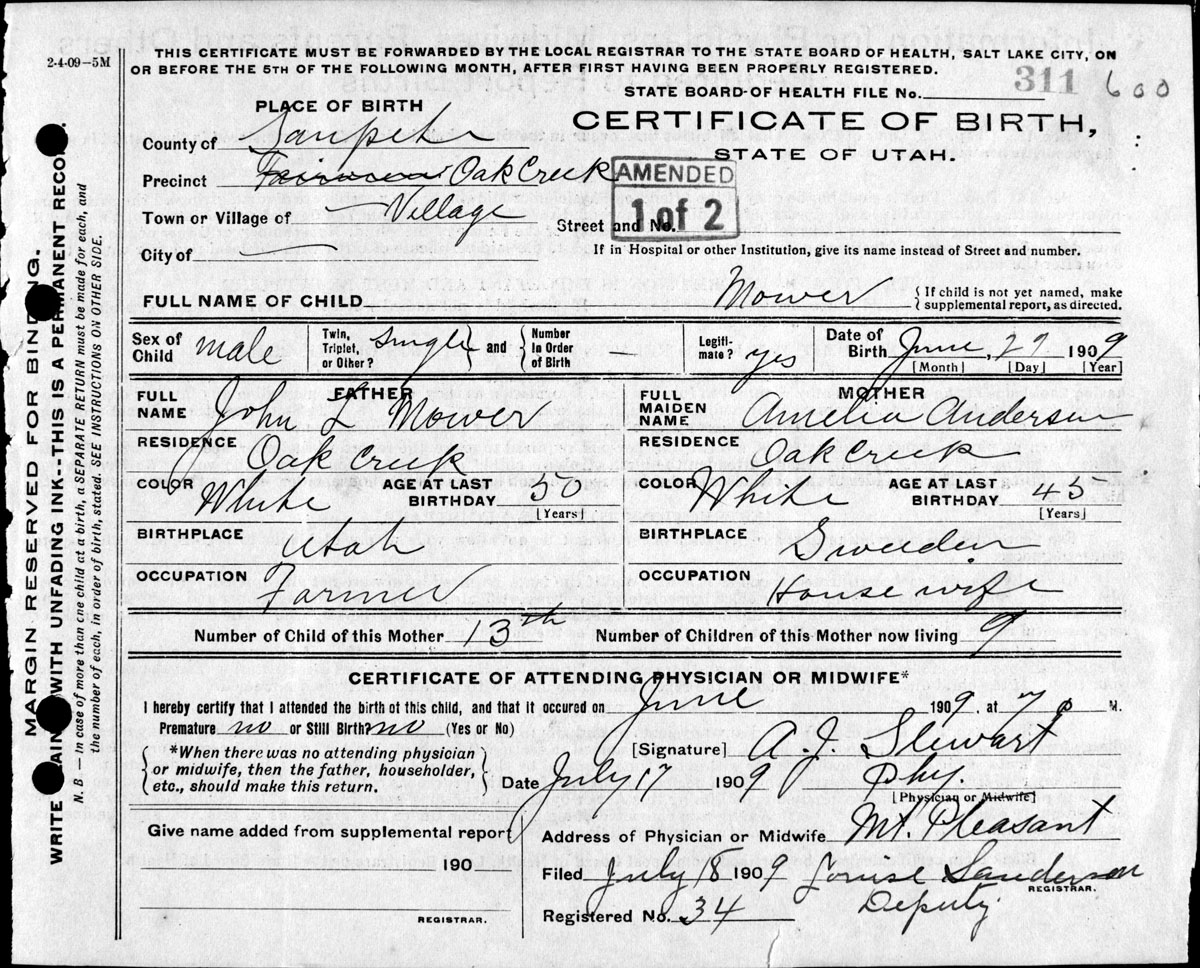 2-4-09—5M
THIS CERTIFICATE MUST BE FORWARDED BY THE LOCAL REGISTRAR TO THE STATE BOARD OF HEALTH, SALT LAKE CITY, ON
OR BEFORE THE 5TH OF THE FOLLOWING MONTH, AFTER FIRST HAVING BEEN PROPERLY REGISTERED.
STATE BOARD OF HEALTH FILE No. 311 600
PLACE OF BIRTH
CERTIFICATE OF BIRTH,
STATE OF UTAH.
County of Sanpete
Precinct Oak Creek
AMENDED
1 of 2
Town or Village of — Village
Street and No.
City of —
If in Hospital or other Institution, give its name instead of Street and number.
FULL NAME OF CHILD Mower
{If child is not yet named, make
supplemental report, as directed.
Sex of Child male
Twin, Triplet, or Other? Single and {Number In Order of Birth —
Legiti-mate? yes
Date of Birth June, 27 1909
[Month] [Day] [Year]
FATHER
FULL NAME John L Mower
RESIDENCE Oak Creek
COLOR White AGE AT LAST BIRTHDAY 50
[Years]
BIRTHPLACE Utah
OCCUPATION Farmer
MOTHER
FULL MAIDEN NAME Amelia Anderson
RESIDENCE Oak Creek
COLOR White AGE AT LAST BIRTHDAY 45
[Years]
BIRTHPLACE Sweeden
OCCUPATION House wife
Number of Child of this Mother 13th Number of Children of this Mother now living 9
CERTIFICATE OF ATTENDING PHYSICIAN OR MIDWIFE*
I hereby certify that I attended the birth of this child, and that it occured on June 1909, at 7 P M.
Premature no or Still Birth no (Yes or No)
*When there was no attending physician
or midwife, then the father, householder,
etc., should make this return.
[Signature] A. J. Stewart
Date July 17 1909 Phy.
[Physician or Midwife]
Give name added from supplemental report
190
REGISTRAR.
Address of Physician or Midwife Mt. Pleasant
Filed July 18 1909 Louise Sanderson
REGISTRAR.
Registered No. 34 Deputy
MARGIN RESERVED FOR BINDING.
WRITE PLAINLY WITH UNFADING INK--THIS IS A PERMANENT RECORD.
N. B — in case of more than one child at a birth, a SEPARATE RETURN must be made for each, and
the number of each, in order of birth, stated. SEE INSTRUCTIONS ON OTHER SIDE.